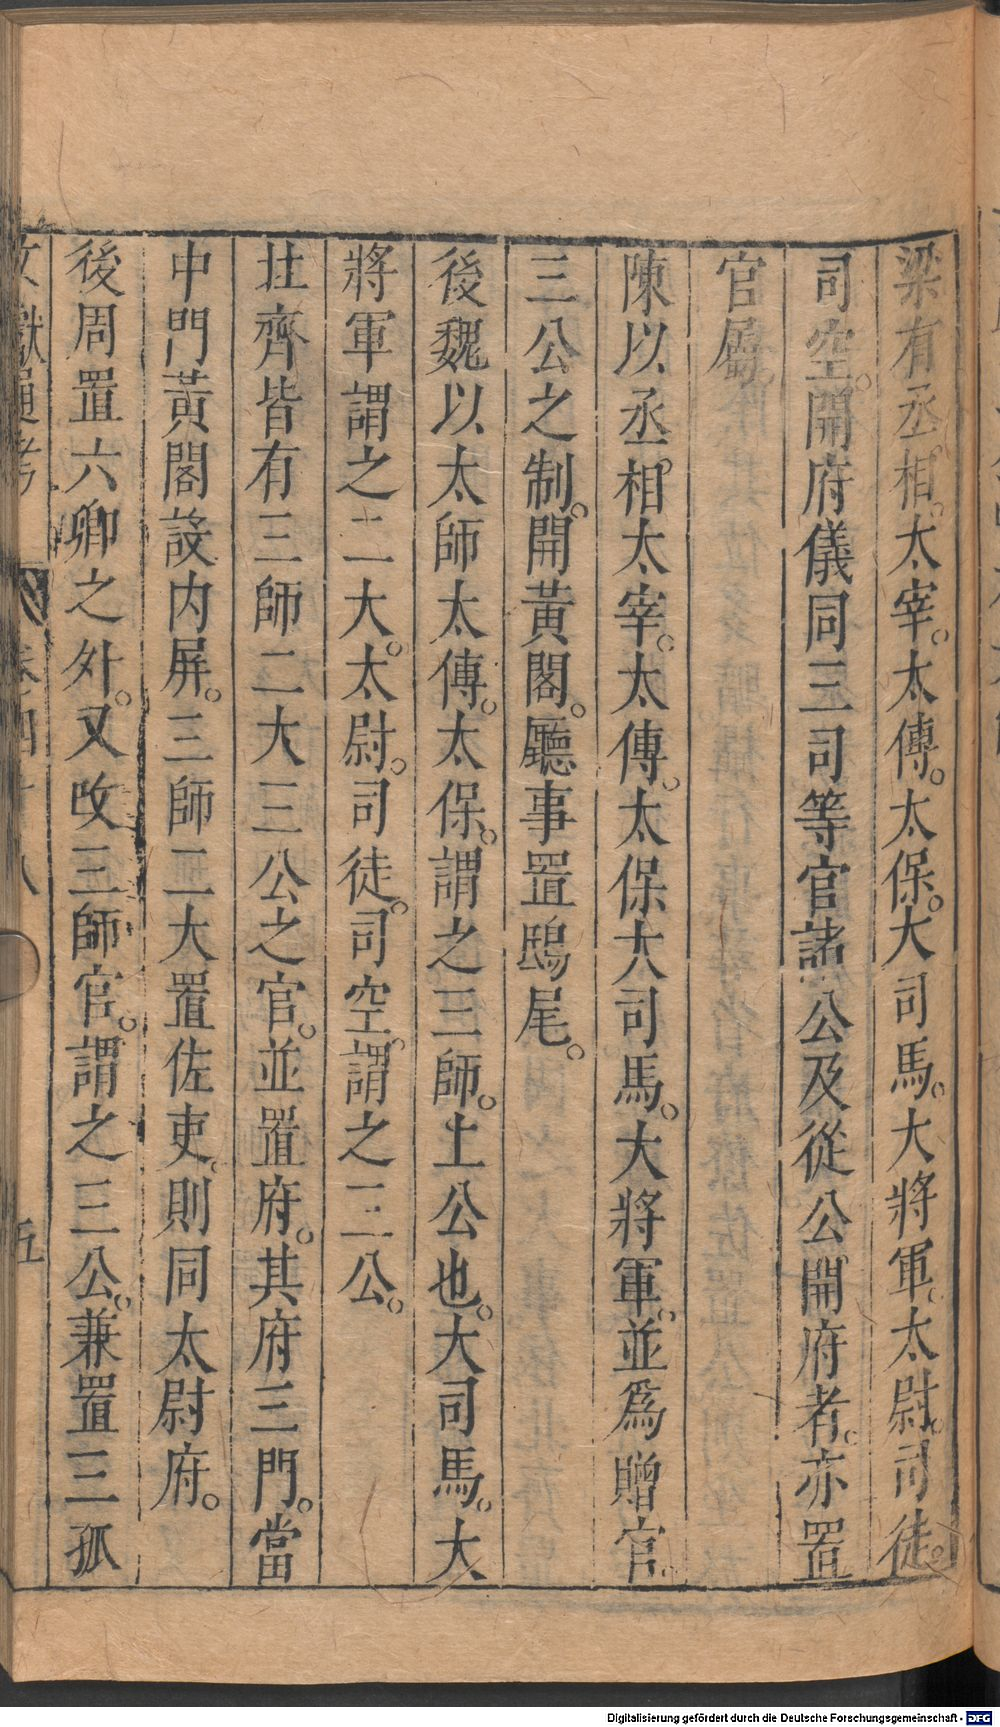 梁有丞相。太宰。太傅。太保。大司馬。大將軍。太尉。司徒。
司空。開府儀同三司等官諸公及從公開府者。亦置
官屬。
陳以丞相。太宰。太傅。太保大司馬。大將軍。並爲贈官。
三公之制。開黃閣。廳事置鴟尾。
後魏以太師太傅。太保。謂之三師。上公也。大司馬。大
將軍謂之二大。太尉。司徒。司空。謂之三公。
北齊皆有三師二大三公之官。並置府。其府三門。當
中門黃閣設內屏。三師二大置佐吏。則同太尉府。
後周置六卿之外。又改三師官。謂之三公。兼置三孤
文獻通考 卷四十八 五
Digitalisierung gefördert durch die Deutsche Forschungsgemeinschaft - DFG